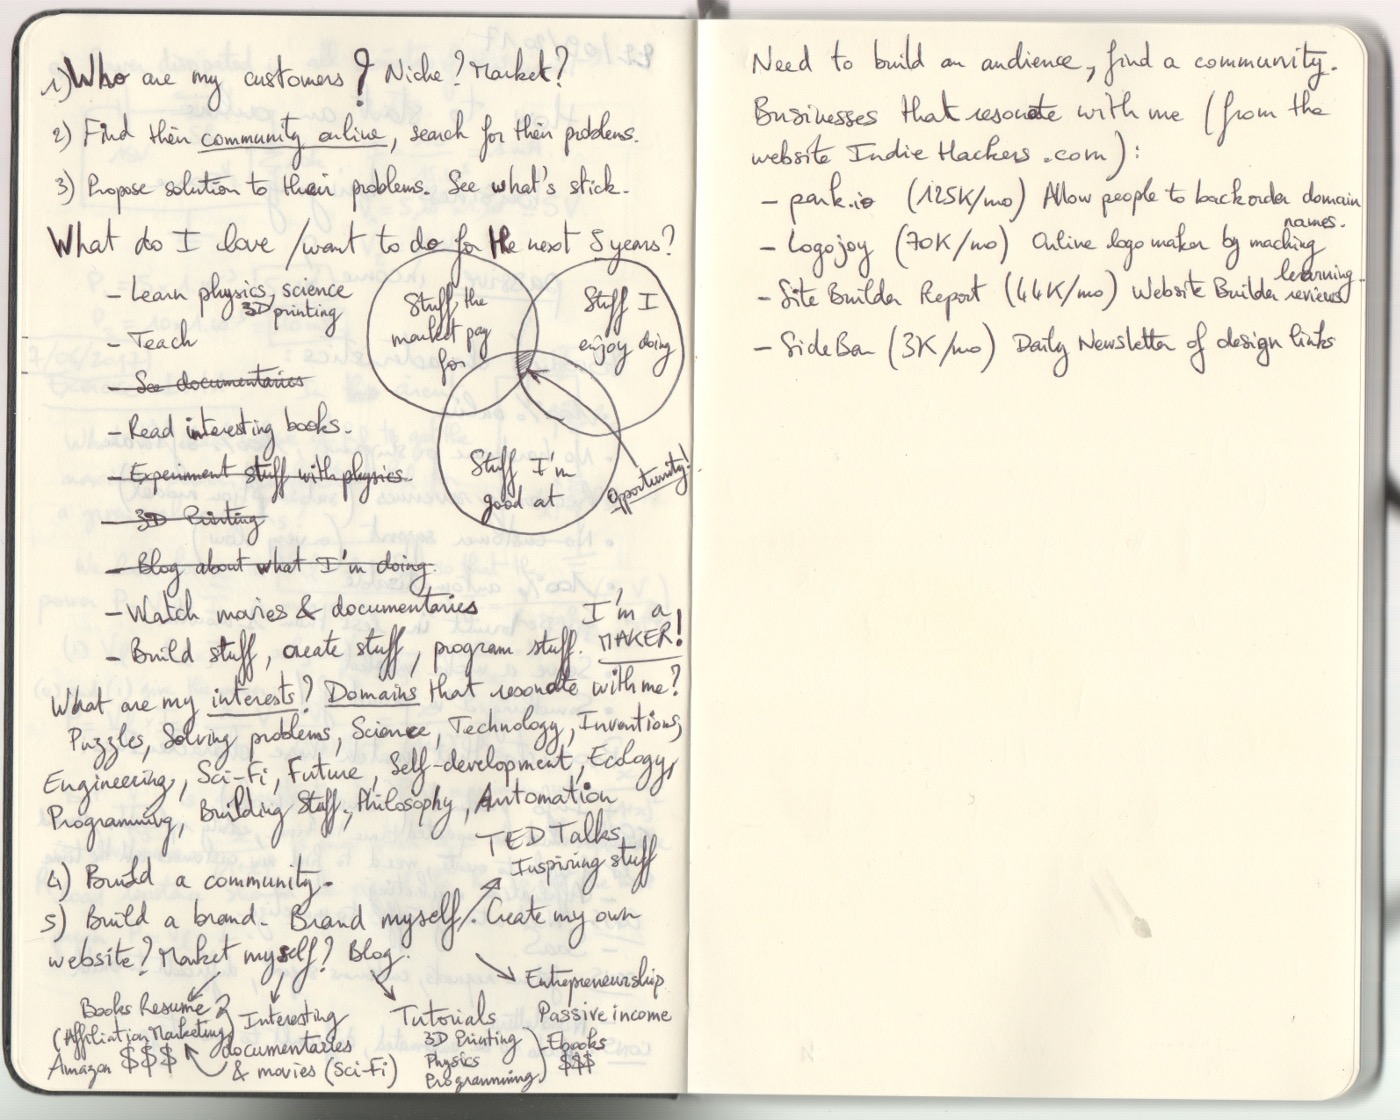 1) Who are my customers? Niche? Market?
2) Find their community online, search for their problems.
3) Propose solution to their problems. See what's stick.
What do I love / want to do for the next 5 years?
- Learn physics, science
3D printing
- Teach
- See documentaries
- Read interesting books.
- Experiment stuff with physics.
- 3D Printing
- Blog about what I'm doing.
- Watch movies & documentaries
- Build stuff, create stuff, program stuff.
I'm a
MAKER!
Stuff the
market pay
for
Stuff I
enjoy doing
Stuff I'm
good at
opportunity!
What are my interests? Domains that resonate with me?
Puzzles, Solving problems, Science, Technology, Inventions,
Engineering, Sci-Fi, Future, Self-development, Ecology,
Programming, Building Stuff, Philosophy, Automation
TED Talks
Inspiring stuff
4) Build a community.
5) Build a brand. Brand myself. Create my own
website? Market myself? Blog.
Books Resume
(Affiliation Marketing)
Amazon $$$
Interesting
documentaries
& movies (Sci-Fi)
Tutorials
3D Printing
Physics
Programming
Entrepreneurship
Passive income
Ebooks
$$$
Need to build an audience, find a community.
Businesses that resonate with me (from the
website Indie Hackers.com):
- park.io (125K/mo) Allow people to backorder domain
names.
- Logojoy (70K/mo) Online logo maker by maching
learning
- Site Builder Report (44K/mo) Website Builder reviews
- SideBar (3K/mo) Daily Newsletter of design links